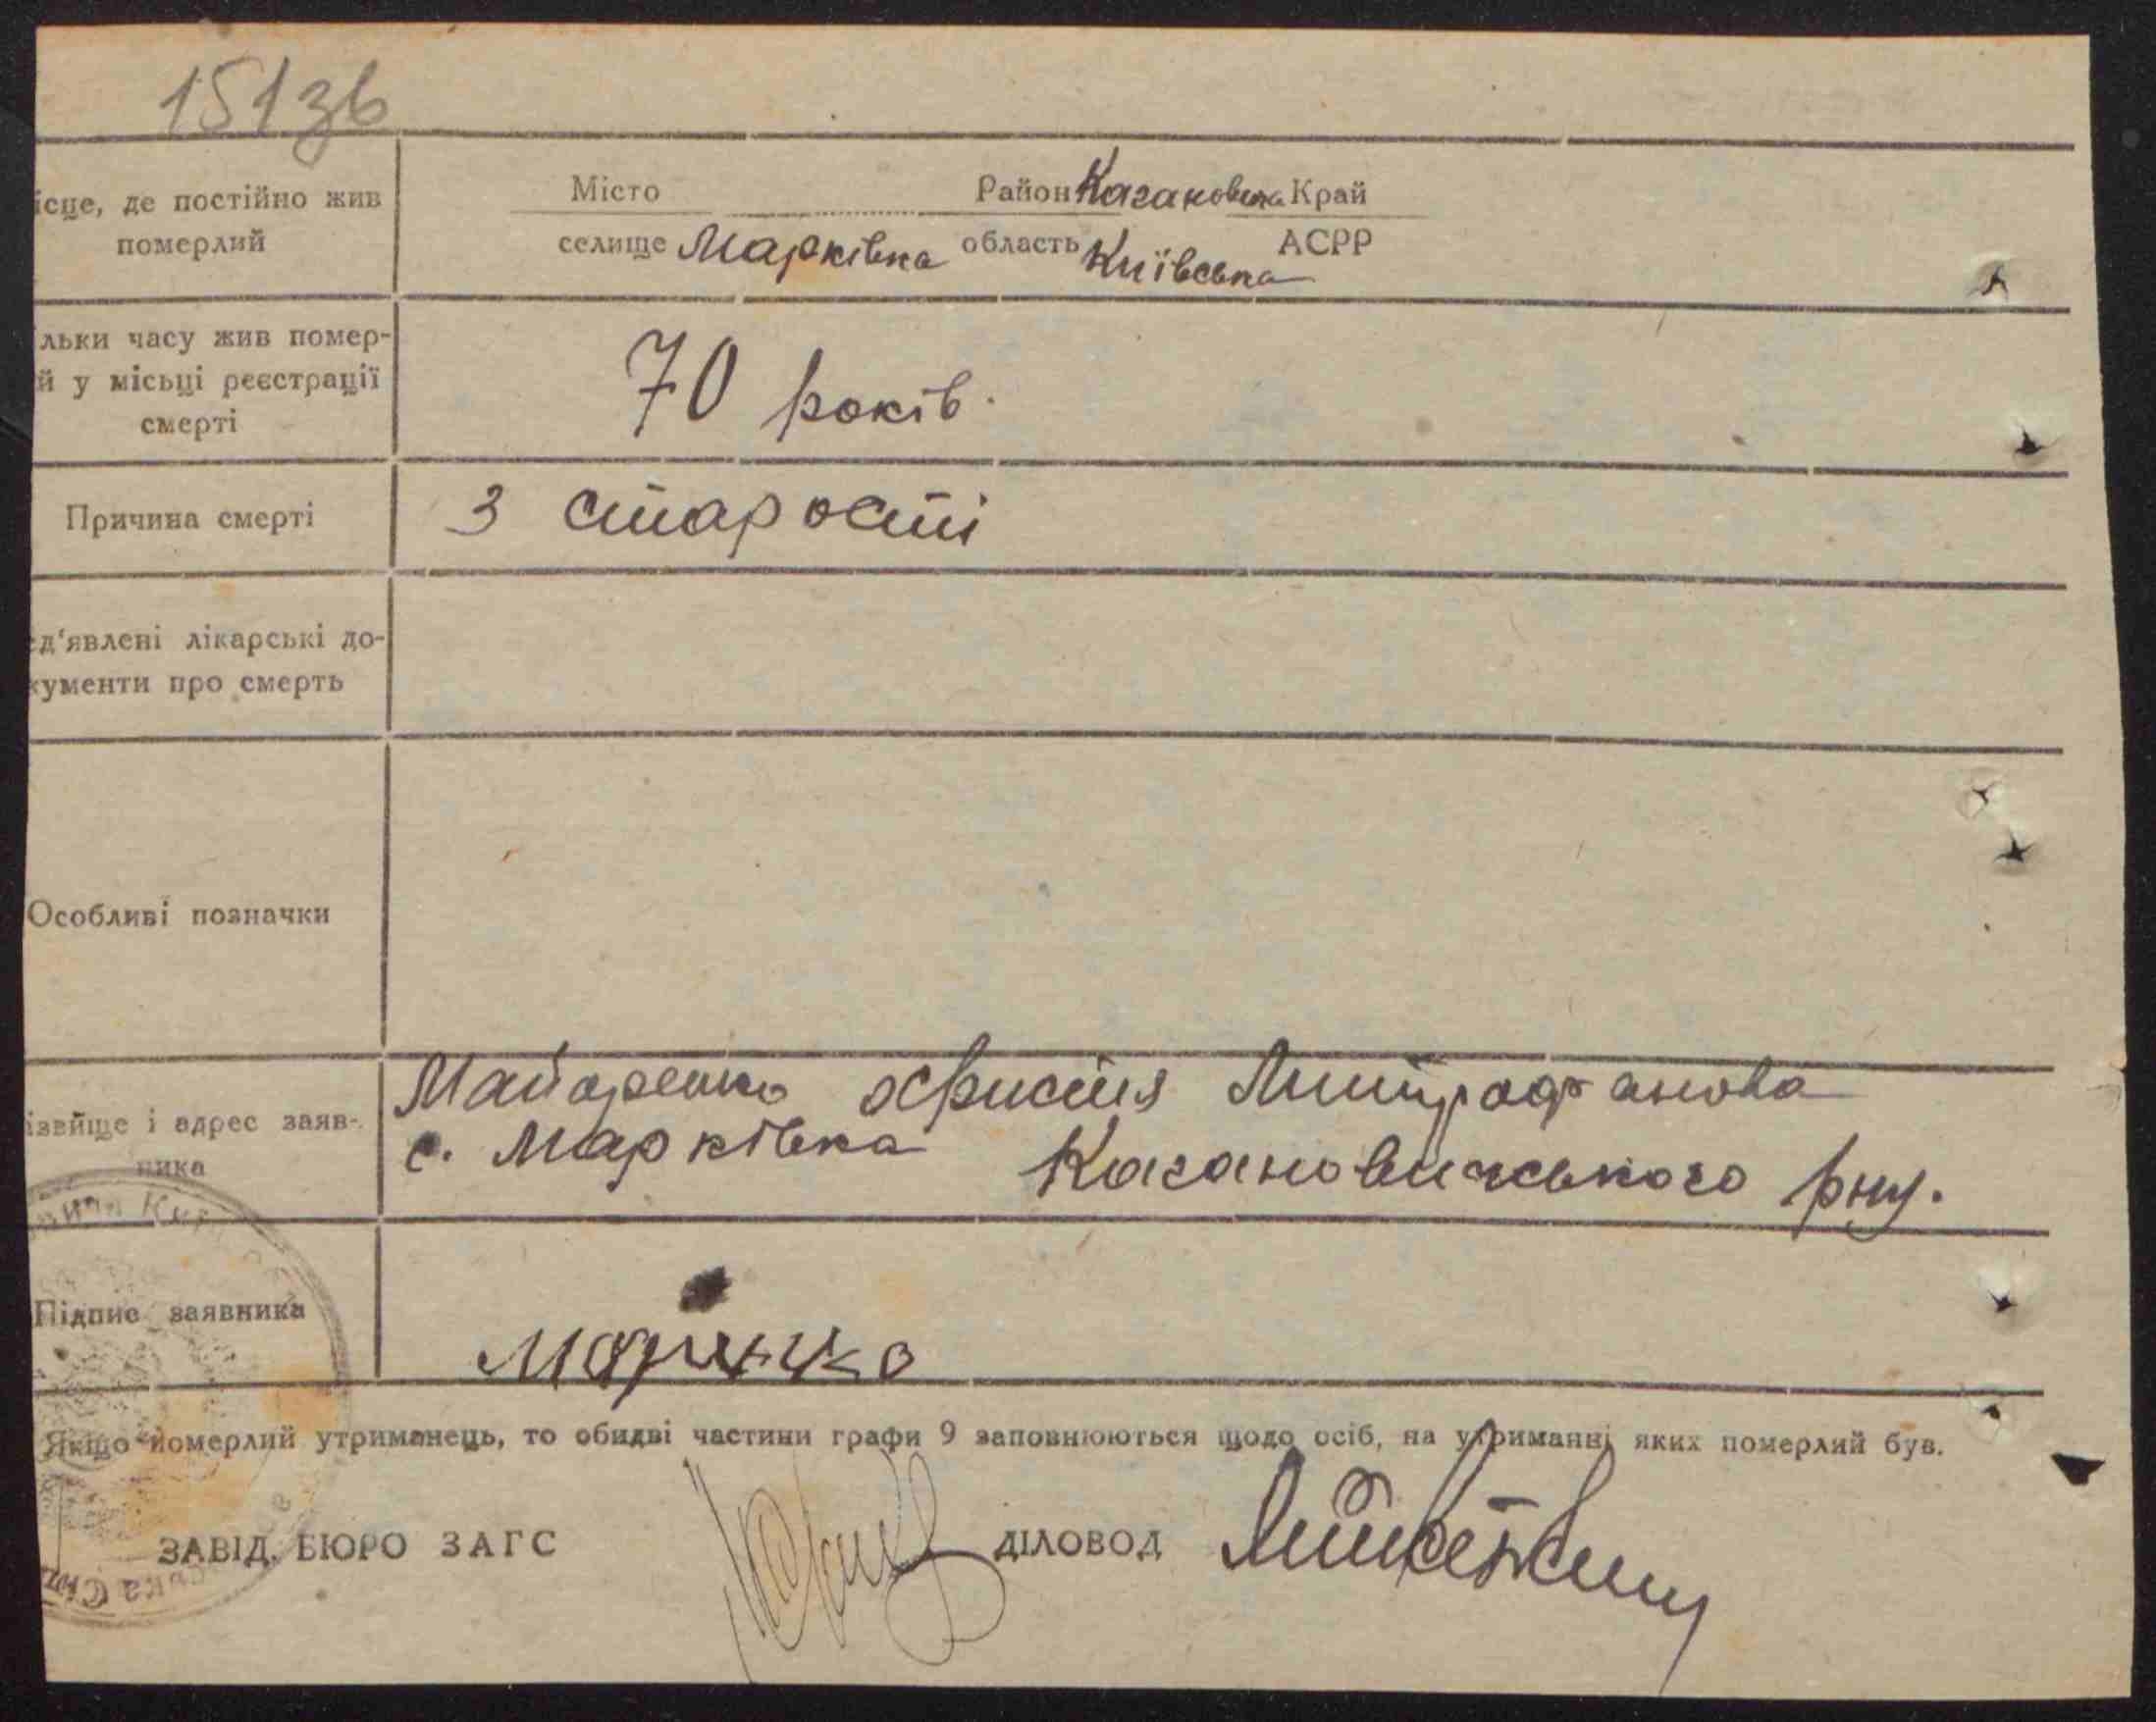 151зв
ісце, де постійно жив
померлий
Місто Район Кагановича Край
селище Марківка область Київська АСРР
льки часу жив помер-
й у місьці реєстрації
смерті
70 років.
Причина смерті
З старости
ед'явлені лікарські до-
кументи про смерть
Особливі позначки
ізвйще і адрес заяв-
ника
Майоренко Христия Митрофанова
с. Марківка Кагановичського рну.
Підпис заявника
Якщо померлий утриманець, то обидві частини графи 9 заповнюються щодо осіб, на утриманні яких померлий був.
ЗАВІД. БЮРО ЗАГС ДІЛОВОД